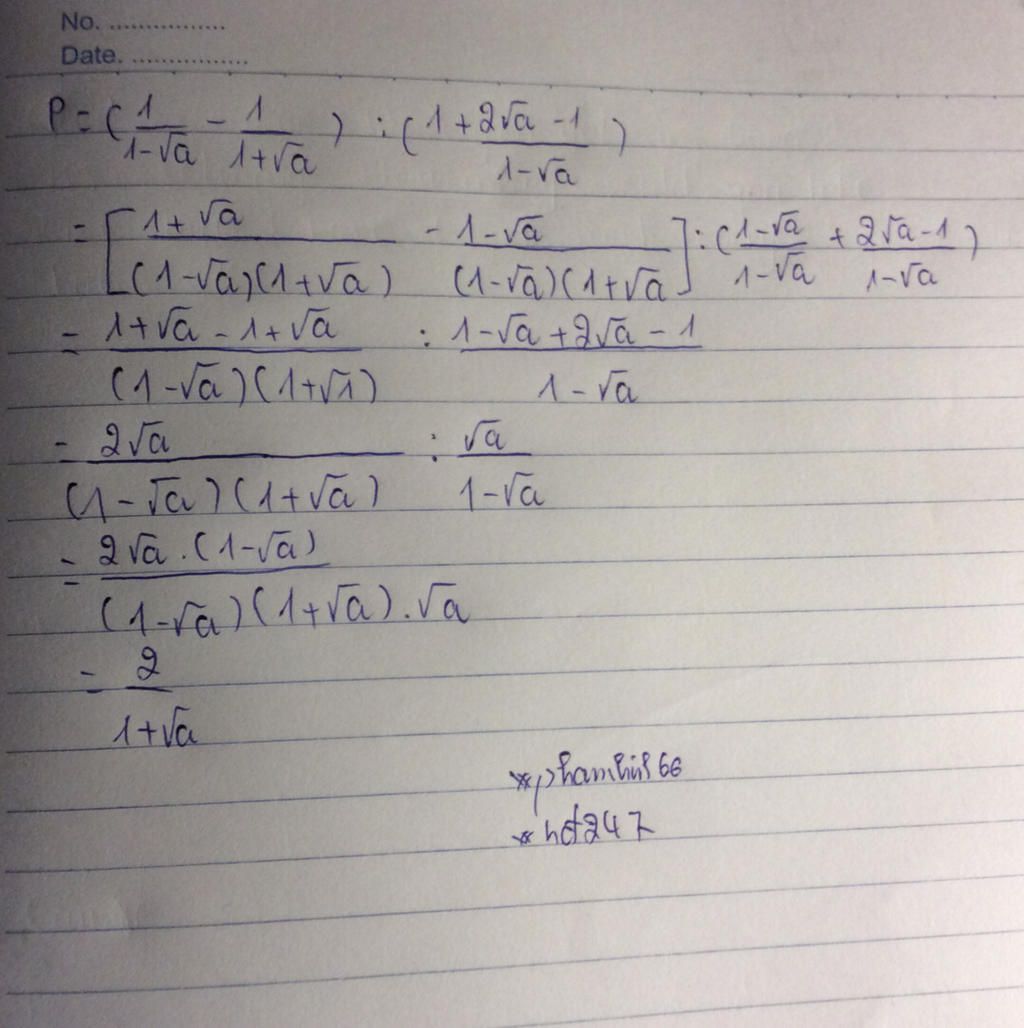 No. ................
Date. ................
P = ( 1/(1-√a) - 1/(1+√a) ) : ( 1 + (2√a - 1)/(1-√a) )
= [ (1+√a)/((1-√a)(1+√a)) - (1-√a)/((1-√a)(1+√a)) ] : ( (1-√a)/(1-√a) + (2√a-1)/(1-√a) )
= (1+√a - 1+√a)/((1-√a)(1+√1)) : (1-√a + 2√a - 1)/(1-√a)
= 2√a/((1-√a)(1+√a)) : √a/(1-√a)
= 2√a . (1-√a)/((1-√a)(1+√a).√a)
= 2/(1+√a)
247